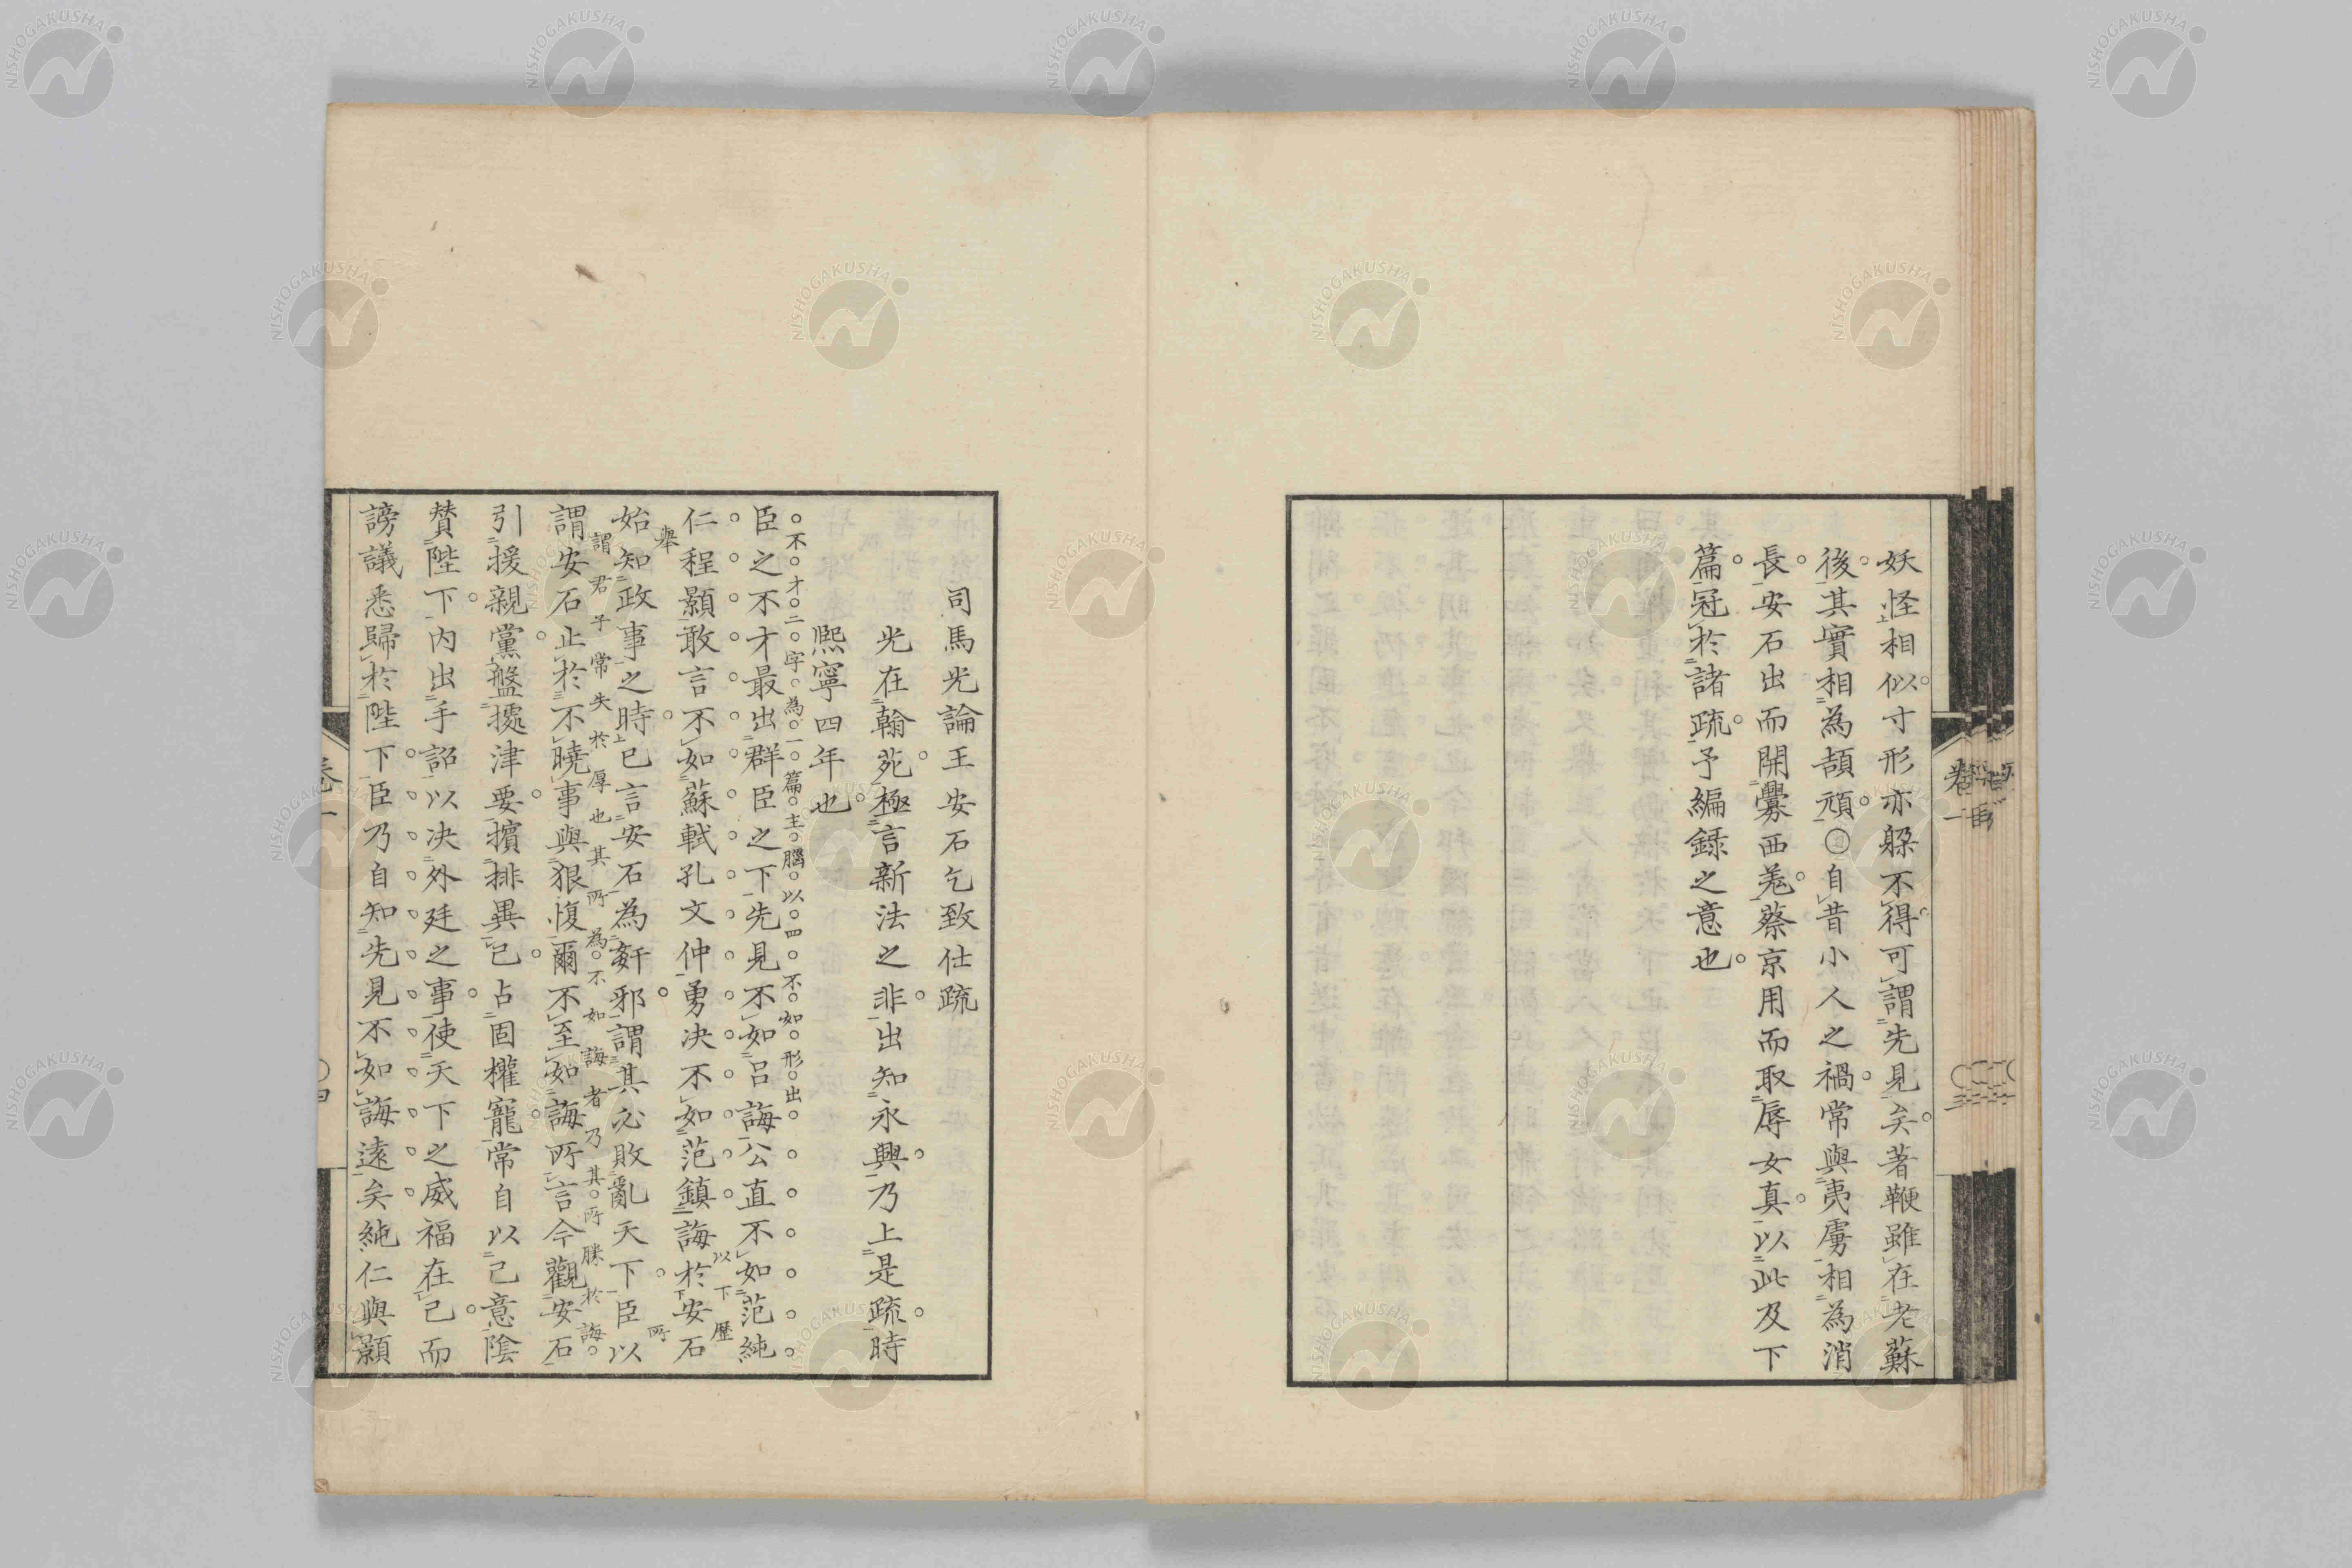 妖怪相似寸形亦躲不得可謂先見矣著鞭雖在老蘇
後其實相為頡頏〇自昔小人之禍常與夷虜相為消
長安石出而開釁西羌蔡京用而取辱女真以此及下
篇冠於諸疏予編錄之意也
司馬光論王安石乞致仕疏
光在翰苑極言新法之非出知永興乃上是疏時
熙寧四年也
不才二字為一篇主腦以四不如形出
臣之不才最出群臣之下先見不如呂誨公直不如范純
仁程顥敢言不如蘇軾孔文仲勇決不如范鎮誨於安石
以下歷舉
始知政事之時已言安石為姧邪謂其必敗亂天下臣以
所謂君子常失於厚也其所為不如誨者乃其所勝於誨
謂安石止於不曉事與狠愎爾不至如誨所言今觀安石
引援親黨盤據津要擯排異己占固權寵常自以己意陰
贊陛下內出手詔以決外廷之事使天下之威福在己而
謗議悉歸於陛下臣乃自知先見不如誨遠矣純仁與顥
卷一
NISHOGAKUSHA